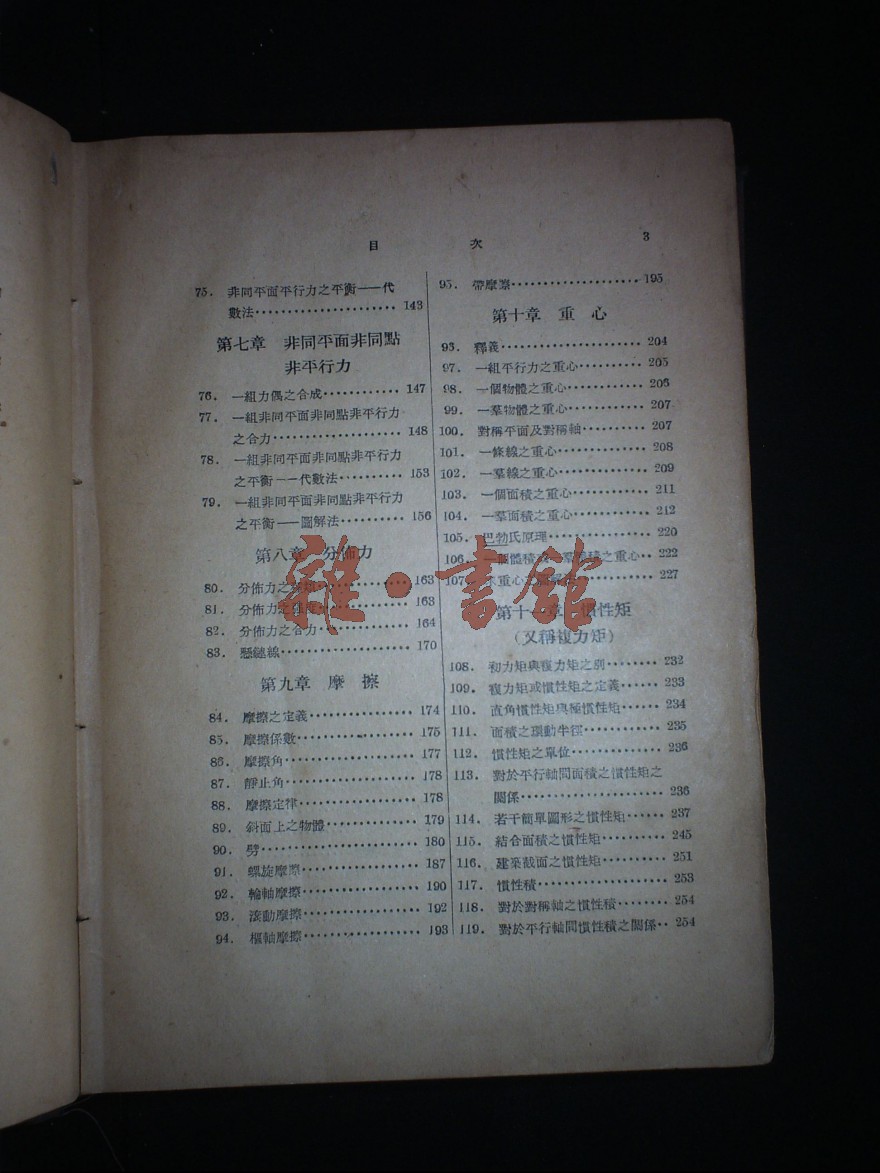 目 次 3
75. 非同平面平行力之平衡——代
數法 143
第七章 非同平面非同點
非平行力
76. 一組力偶之合成 147
77. 一組非同平面非同點非平行力
之合力 148
78. 一組非同平面非同點非平行力
之平衡——代數法 153
79. 一組非同平面非同點非平行力
之平衡——圖解法 156
第八章 分佈力
80. 分佈力之 163
81. 分佈力之 163
82. 分佈力之合力 164
83. 懸鏈線 170
第九章 摩擦
84. 摩擦之定義 174
85. 摩擦係數 175
86. 摩擦角 177
87. 靜止角 178
88. 摩擦定律 178
89. 斜面上之物體 179
90. 劈 180
91. 螺旋摩擦 187
92. 輪軸摩擦 190
93. 滾動摩擦 192
94. 樞軸摩擦 193
95. 帶摩擦 195
第十章 重心
96. 釋義 204
97. 一組平行力之重心 205
98. 一個物體之重心 206
99. 一羣物體之重心 207
100. 對稱平面及對稱軸 207
101. 一條線之重心 208
102. 一羣線之重心 209
103. 一個面積之重心 211
104. 一羣面積之重心 212
105. 巴勃氏原理 220
106. 一個體積或一羣體積之重心 222
107. 求重心之圖解法 227
第十一章 慣性矩
(又稱複力矩)
108. 初力矩與複力矩之別 232
109. 複力矩或慣性矩之定義 233
110. 直角慣性矩與極慣性矩 234
111. 面積之環動半徑 235
112. 慣性矩之單位 236
113. 對於平行軸間面積之慣性矩之
關係 236
114. 若干簡單圖形之慣性矩 237
115. 結合面積之慣性矩 245
116. 建築截面之慣性矩 251
117. 慣性積 253
118. 對於對稱軸之慣性積 254
119. 對於平行軸間慣性積之關係 254
雜·書館